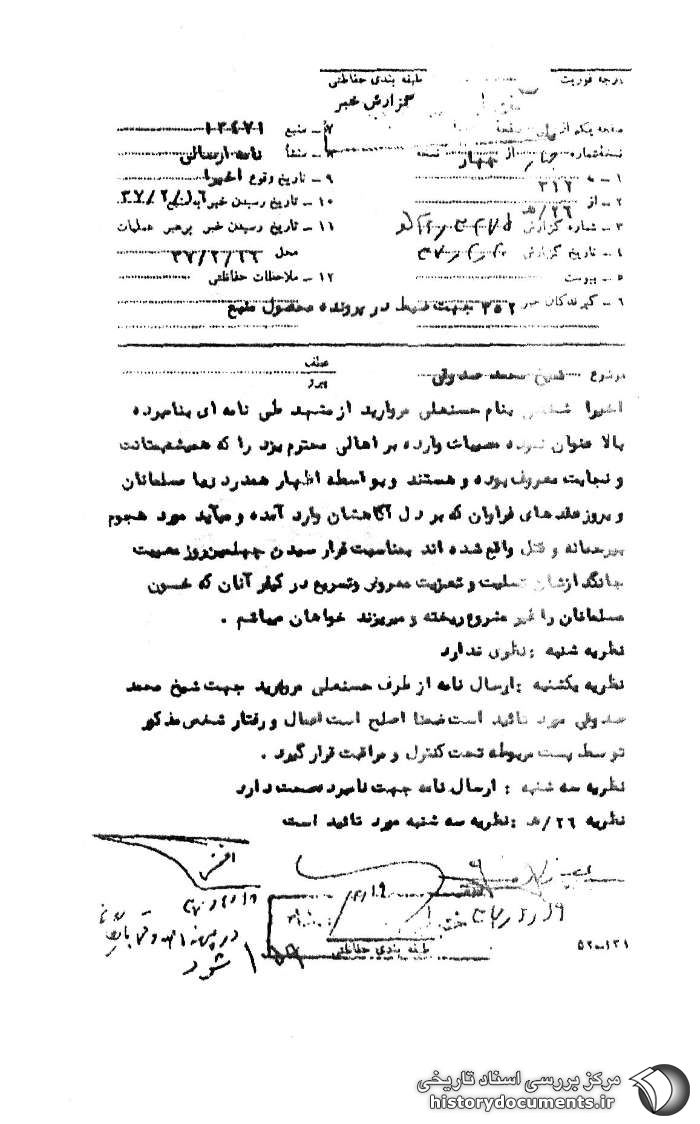 درجه فوریت
طبقه بندی حفاظتی
گزارش خبر
صفحه یکم از صفحه
نسخه شماره از چهار نسخه
۱ ـ به ۳۱۲
۲ ـ از ۲۶/هـ
۳ ـ شماره گزارش
۴ ـ تاریخ گزارش
۵ ـ پیوست
۶ ـ گیرندگان خبر ۳۵۲ جهت ضبط در پرونده محصول منبع
۷ ـ منبع ۱۳۴۷۱
۸ ـ منشأ نامه ارسالی
۹ ـ تاریخ وقوع اخیرا
۱۰ ـ تاریخ رسیدن خبر به منبع
۱۱ ـ تاریخ رسیدن خبر برهبر عملیات
محل ۳۷/۲/۲۶
۱۲ ـ ملاحظات حفاظتی
موضوع شیخ محمد صدوقی
عطف
پیرو
اخیرا شخصی بنام حسنعلی مروارید از مشهد طی نامه ای بنامبرده
بالا عنوان نموده مصیبات وارده بر اهالی محترم یزد را که همیشه بمتانت
و نجابت معروف بوده و هستند و بواسطه اظهار همدردی با مسلمانان
و بروز عقده های فراوان که بر دل آگاهشان وارد آمده و میآید مورد هجوم
بیرحمانه و قتل واقع شده اند بمناسبت فرا رسیدن چهلمین روز مصیبت
جانگدازشان تسلیت و تعزیت معروض و تسریع در کیفر آنان که خسون
مسلمانان را غیر مشروع ریخته و میریزند خواهان میباشم .
نظریه شنبه : نظری ندارد
نظریه یکشنبه : ارسال نامه از طرف حسنعلی مروارید جهت شیخ محمد
صدوقی مورد تائید است ضمنا اصلح است اعمال و رفتار شخص مذکور
توسط پست مربوطه تحت کنترل و مراقبت قرار گیرد .
نظریه سه شنبه : ارسال نامه جهت نامبرده صحت دارد
نظریه ۲۶/هـ : نظریه سه شنبه مورد تائید است
شود
طبقه بندی حفاظتی
۵۲-۱۲۱
مرکز بررسی اسناد تاریخی
historydocuments.ir